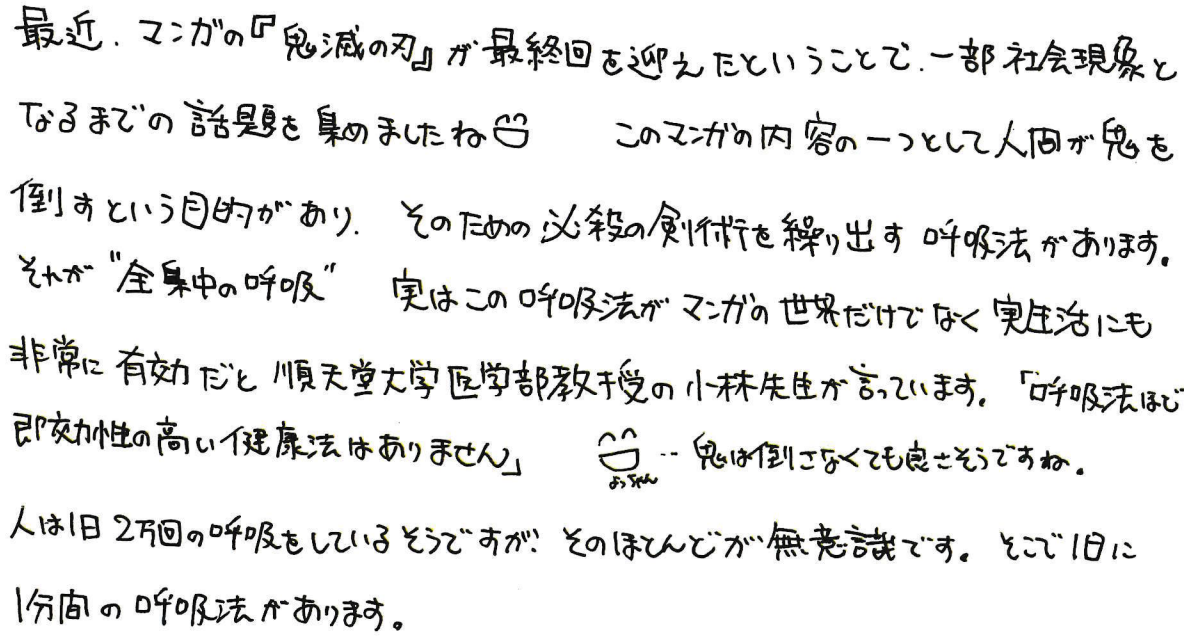 最近、マンガの『鬼滅の刃』が最終回を迎えたということで、一部社会現象と
なるまでの話題を集めましたね
このマンガの内容の一つとして人間が鬼を
倒すという目的があり、そのための必殺の剣術を繰り出す呼吸法があります。
それが“全集中の呼吸” 実はこの呼吸法がマンガの世界だけでなく実生活にも
非常に有効だと順天堂大学医学部教授の小林先生が言っています。「呼吸法ほど
即効性の高い健康法はありません」 ‥鬼は倒さなくても良さそうですね。
よっちゃん
人は1日2万回の呼吸をしているそうですが、そのほとんどが無意識です。そこで1日に
1分間の呼吸法があります。